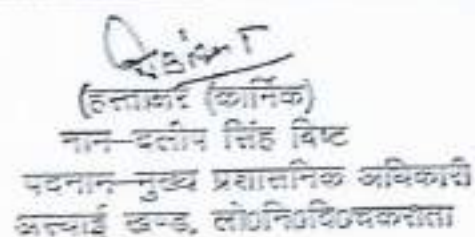 (हस्ताक्षर (कार्मिक)
नाम–दलीप सिंह विष्ट
पदनाम–मुख्य प्रशासनिक अधिकारी
अस्थाई खण्ड, लो0नि0वि0चकराता